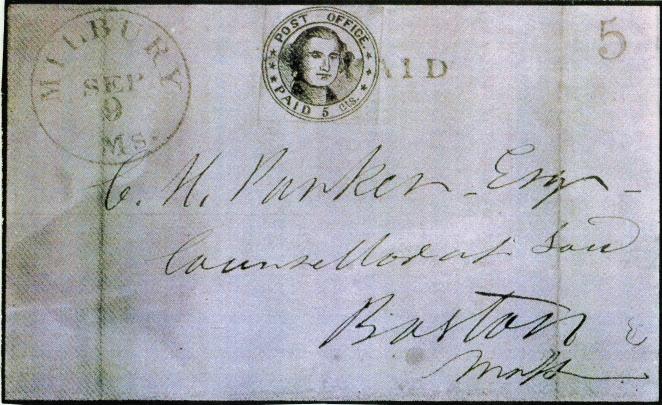 MILBURY
SEP
9
MS.
POST OFFICE
PAID 5 cts.
PAID
5
C. H. Parker Esqr
Counsellor at Law
Boston
Mass